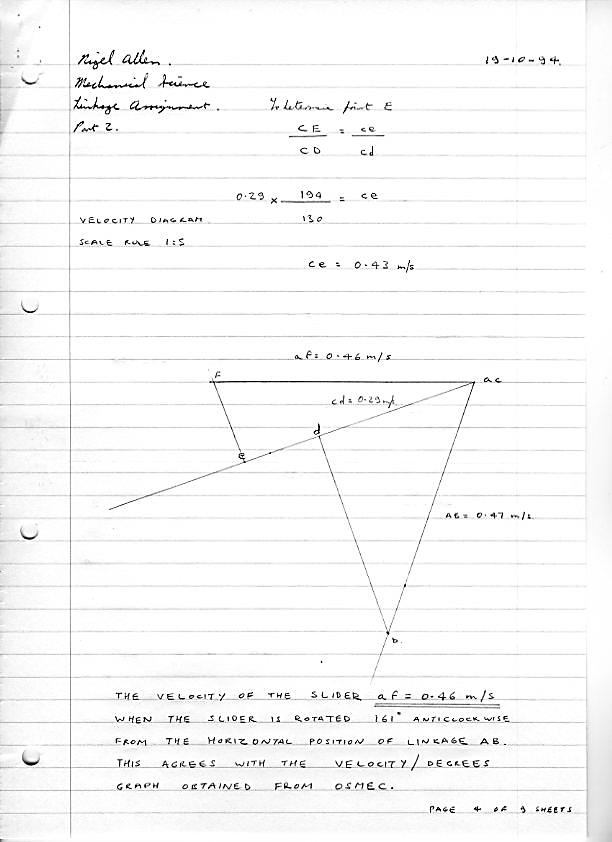 Nigel Allen. 19-10-94.
Mechanical Science
Linkage Assignment. To determine point E
Part 2. CE = ce
CD cd
0.29 x 194 = ce
130
VELOCITY DIAGRAM.
SCALE RULE 1:5
ce = 0.43 m/s
af = 0.46 m/s
f ac
cd = 0.29 m/s
d
e
AB = 0.47 m/s.
b.
THE VELOCITY OF THE SLIDER af = 0.46 m/s
WHEN THE SLIDER IS ROTATED 161° ANTICLOCKWISE
FROM THE HORIZONTAL POSITION OF LINKAGE AB.
THIS AGREES WITH THE VELOCITY/DEGREES
GRAPH OBTAINED FROM OSMEC.
PAGE 4 OF 9 SHEETS